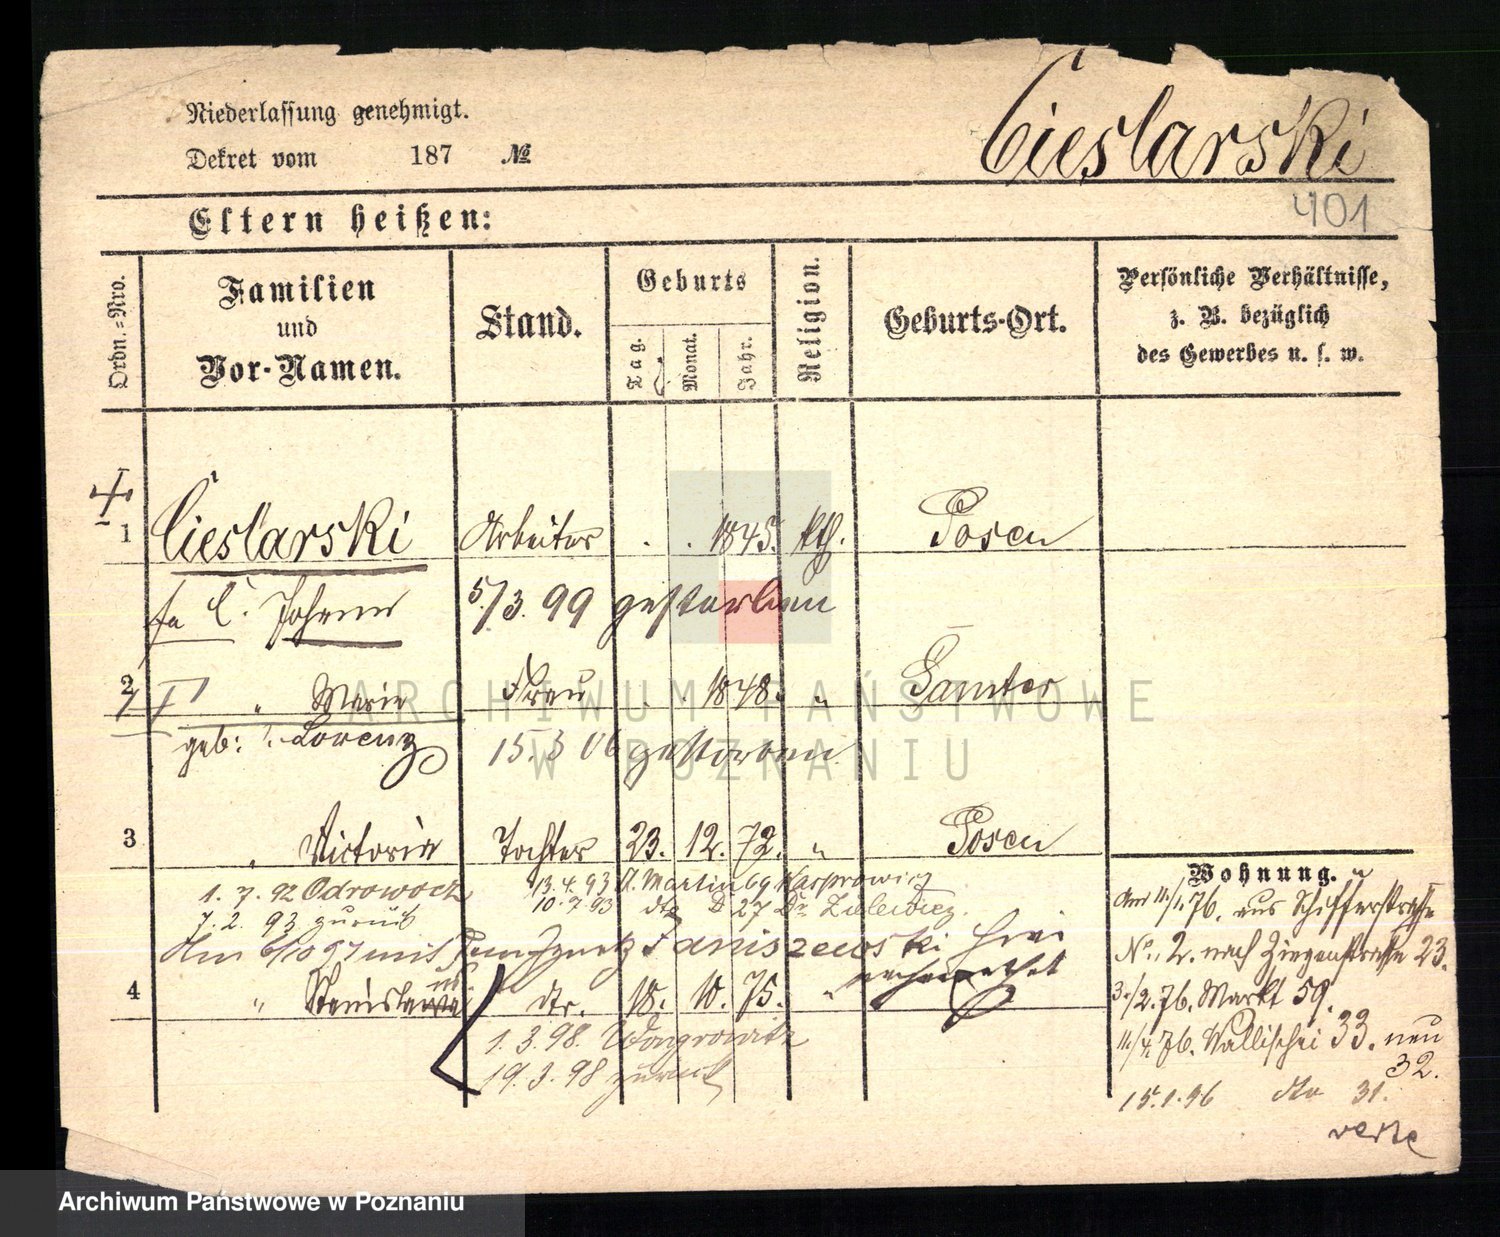 Niederlassung genehmigt.
Dekret vom 187 №
Cieslarski
401
Eltern heißen:
Ordn.=Nro.
Familien und Vor-Namen.
Stand.
Geburts
Tag.
Monat.
Jahr.
Religion.
Geburts-Ort.
Persönliche Verhältnisse,
z. B. bezüglich
des Gewerbes u. s. w.
1 Cieslarski Arbeiter . . 1845. kth. Posen
Johann 5/3. 99 gestorben
2 " Maria Frau . . 1848. " Samter
geb: Lorenz 15.3 06 gestorben
3 " Victoria Tochter 23. 12. 72. " Posen
1. 7. 92 Odrowocz 13. 4. 93 St. Martin 69 Kasprowicz
7. 2. 93 zurück 10. 7. 93 dto 27 Dr. Zielewicz.
Janiszewski
4 " Stanislaus dto. 18. 10. 75. "
1. 3. 98. Wongrowitz
19. 3. 98 zurück
Wohnung.
Am 11/1. 76. aus Schifferstraße
No. 2. nach Ziegenstraße 23.
3./2. 76. Markt 59.
11./4. 76. Wallischei 33. neu
32.
15. 1. 96 dto 31.
Archiwum Państwowe w Poznaniu
ARCHIWUM PAŃSTWOWE
W POZNANIU